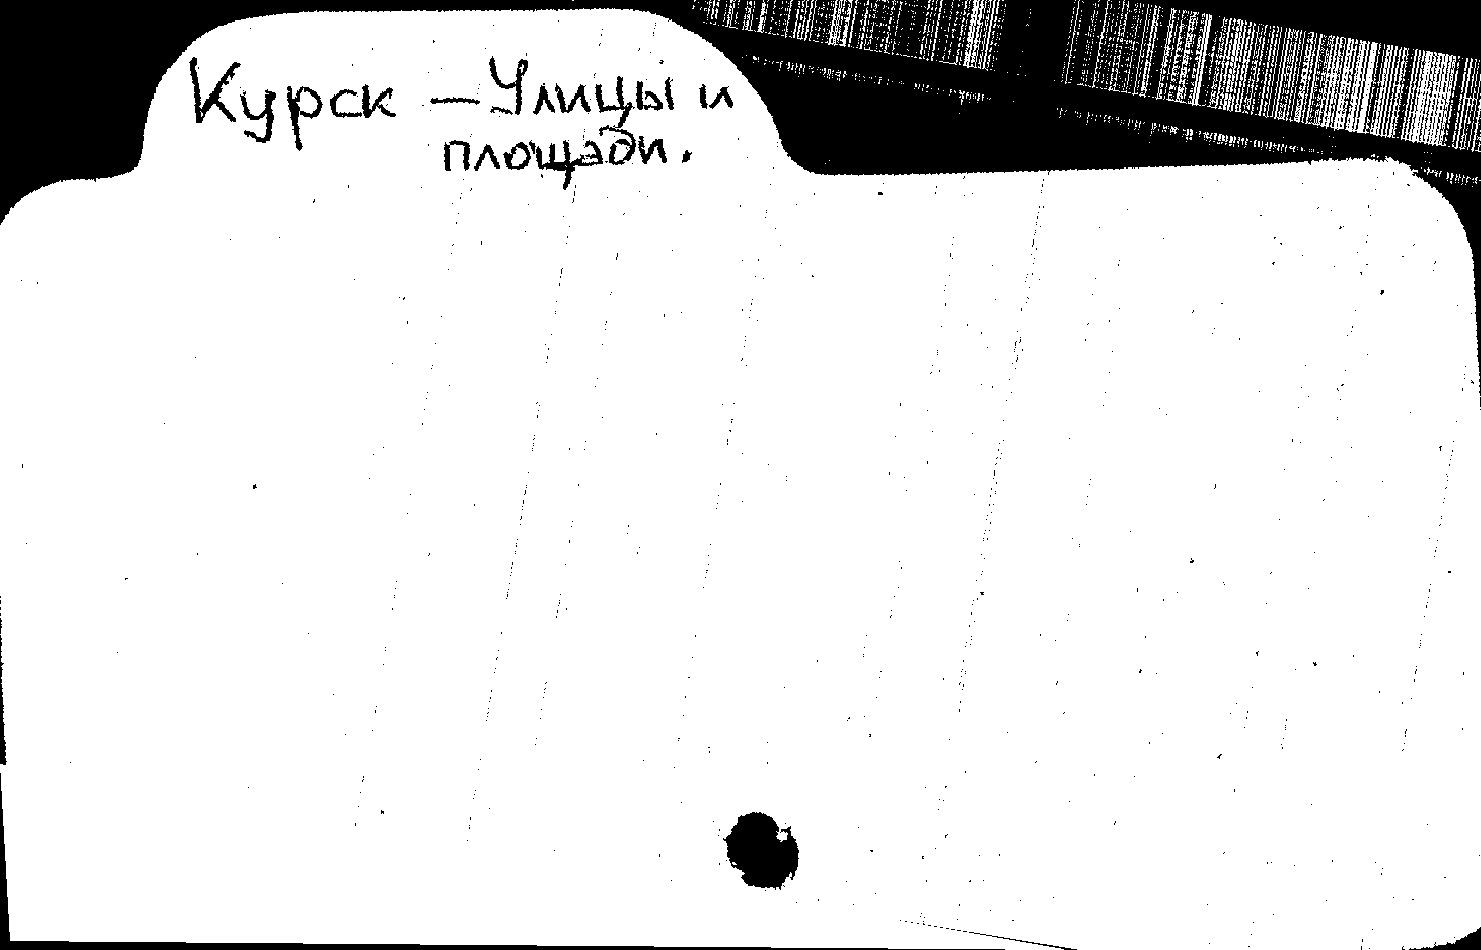 Курск — Улицы и
площади.